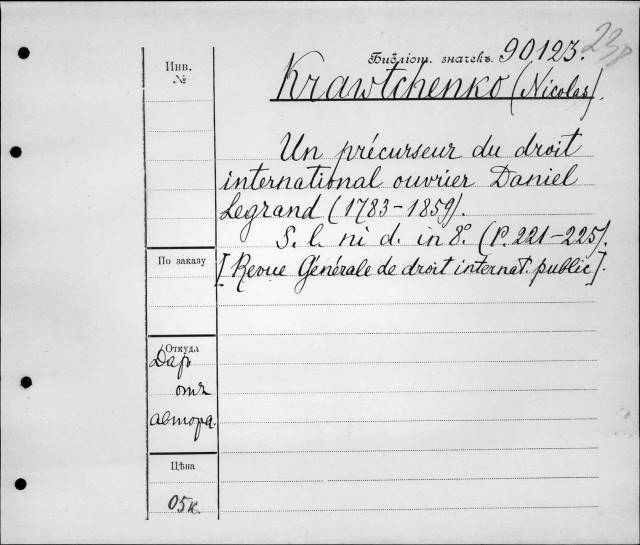 Библіот. значекъ. 90,123.
Инв. №
Krawtchenko (Nicolas).
Un précurseur du droit
international ouvrier Daniel
Legrand (1783-1859).
S. l. ni d. in 8º. (P. 221-225).
По заказу
[Revue Générale de droit internat. public].
Откуда
Даръ
отъ
автора.
Цѣна
05к.